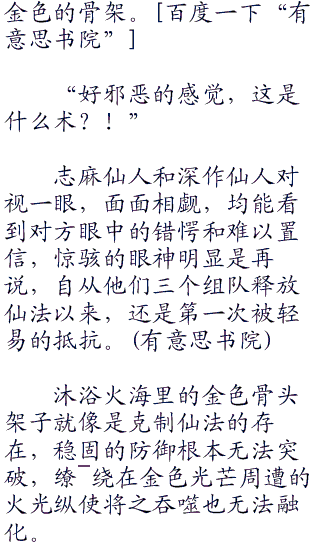 金色的骨架。[百度一下“有
意思书院”]
“好邪恶的感觉，这是
什么术？！”
志麻仙人和深作仙人对
视一眼，面面相觑，均能看
到对方眼中的错愕和难以置
信，惊骇的眼神明显是再
说，自从他们三个组队释放
仙法以来，还是第一次被轻
易的抵抗。(有意思书院)
沐浴火海里的金色骨头
架子就像是克制仙法的存
在，稳固的防御根本无法突
破，缭¯绕在金色光芒周遭的
火光纵使将之吞噬也无法融
化。